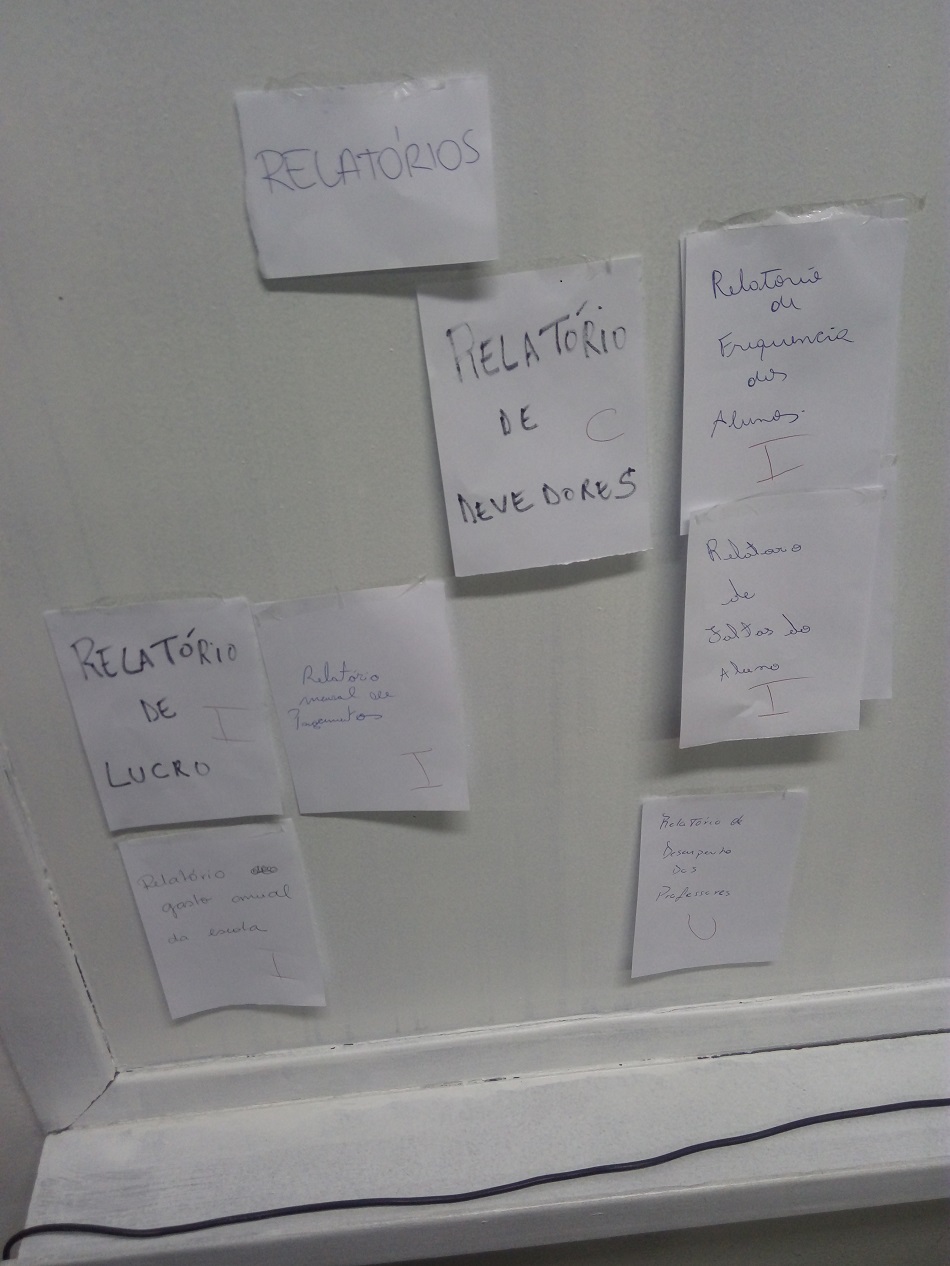 RELATÓRIOS
RELATÓRIO
DE
C
DEVEDORES
Relatório
de
Frequencia
dos
Alunos
I
Relatoro
de
Faltas do
Aluno
I
RELATÓRIO
DE
I
LUCRO
Relatório
mensal de
Pagamentos
I
Relatório
gasto anual
da escola
I
Relatório de
Desempenho
Dos
Professores
U